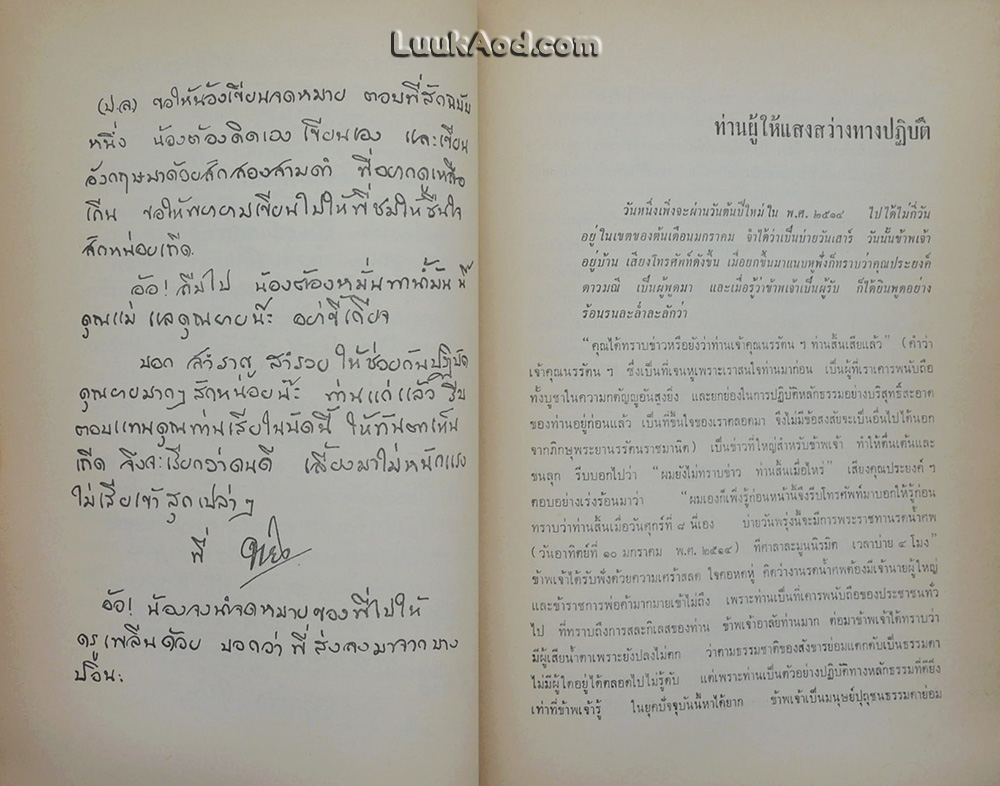 LuukAod.com
(ป.ล) ขอให้น้องเขียนจดหมาย ตอบพี่สักฉบับ
หนึ่ง น้องต้องคิดเอง เขียนเอง และเขียน
อังกฤษมาด้วยสักสองสามคำ พี่อยากดูเหลือ
เกิน ขอให้พยายามเขียนไปให้พี่ชมให้ชื่นใจ
สักหน่อยเถิด
อ้อ! ลืมไป น้องต้องหมั่นทาน้ำมันนี้
คุณแม่ แลคุณยายนี๊ะ อย่าขี้เกียจ
บอก สำราญ สำรวย ให้ช่วยกันปฏิบัติ
คุณยายมากๆ สักหน่อยนี๊ะ ท่านแก่แล้ว รีบ
ตอบแทนคุณท่านเสียในนัดนี้ ให้ทันตาเห็น
เถิด จึงจะเรียกว่าคนดี เลี้ยงมาไม่หนักแรง
ไม่เสียเข้าสุกเปล่าๆ
พี่
อ้อ! น้องจงนำจดหมายของพี่ไปให้
ครูเพลินด้วย บอกว่าพี่สั่งลงมาจากบาง
ป้อน:
ท่านผู้ให้แสงสว่างทางปฏิบัติ
วันหนึ่งเพิ่งจะผ่านวันต้นปีใหม่ใน พ.ศ. ๒๕๑๔ ไปได้ไม่กี่วัน
อยู่ในเขตของต้นเดือนมกราคม จำได้ว่าเป็นบ่ายวันเสาร์ วันนั้นข้าพเจ้า
อยู่บ้าน เสียงโทรศัพท์ดังขึ้น เมื่อยกขึ้นมาแนบหูฟังก็ทราบว่าคุณประยงค์
ดาวมณี เป็นผู้พูดมา และเมื่อรู้ว่าข้าพเจ้าเป็นผู้รับ ก็ได้ยินพูดอย่าง
ร้อนรนละล่ำละลักว่า
“คุณได้ทราบข่าวหรือยังว่าท่านเจ้าคุณนรรัตน ฯ ท่านสิ้นเสียแล้ว” (คำว่า
เจ้าคุณนรรัตน ฯ ซึ่งเป็นที่เจนหูเพราะเราสนใจท่านมาก่อน เป็นผู้ที่เราเคารพนับถือ
ทั้งบูชาในความกตัญญูอันสูงยิ่ง และยกย่องในการปฏิบัติหลักธรรมอย่างบริสุทธิ์สะอาด
ของท่านอยู่ก่อนแล้ว เป็นที่ขึ้นใจของเราตลอดมา จึงไม่มีข้อสงสัยจะเป็นอื่นไปได้นอก
จากภิกษุพระยานรรัตนราชมานิต) เป็นข่าวที่ใหญ่สำหรับข้าพเจ้า ทำให้ตื่นเต้นและ
ขนลุก รีบบอกไปว่า “ผมยังไม่ทราบข่าว ท่านสิ้นเมื่อไหร่” เสียงคุณประยงค์ ฯ
ตอบอย่างเร่งร้อนมาว่า “ผมเองก็เพิ่งรู้ก่อนหน้านี้จึงรีบโทรศัพท์มาบอกให้รู้ก่อน
ทราบว่าท่านสิ้นเมื่อวันศุกร์ที่ ๘ นี่เอง บ่ายวันพรุ่งนี้จะมีการพระราชทานรดน้ำศพ
(วันอาทิตย์ที่ ๑๐ มกราคม พ.ศ. ๒๕๑๔) ที่ศาลาละมูนนิรมิต เวลาบ่าย ๔ โมง”
ข้าพเจ้าได้รับฟังด้วยความเศร้าสลด ใจคอหดหู่ คิดว่างานรดน้ำศพต้องมีเจ้านายผู้ใหญ่
และข้าราชการพ่อค้ามากมายเข้าไม่ถึง เพราะท่านเป็นที่เคารพนับถือของประชาชนทั่ว
ไป ที่ทราบถึงการสละกิเลสของท่าน ข้าพเจ้าอาลัยท่านมาก ต่อมาข้าพเจ้าได้ทราบว่า
มีผู้เสียน้ำตาเพราะยังปลงไม่ตก ว่าตามธรรมชาติของสังขารย่อมแตกดับเป็นธรรมดา
ไม่มีผู้ใดอยู่ได้ตลอดไปไม่รู้ดับ แต่เพราะท่านเป็นตัวอย่างปฏิบัติทางหลักธรรมที่ดียิ่ง
เท่าที่ข้าพเจ้ารู้ ในยุคปัจจุบันนี้หาได้ยาก ข้าพเจ้าเป็นมนุษย์ปุถุชนธรรมดาย่อม